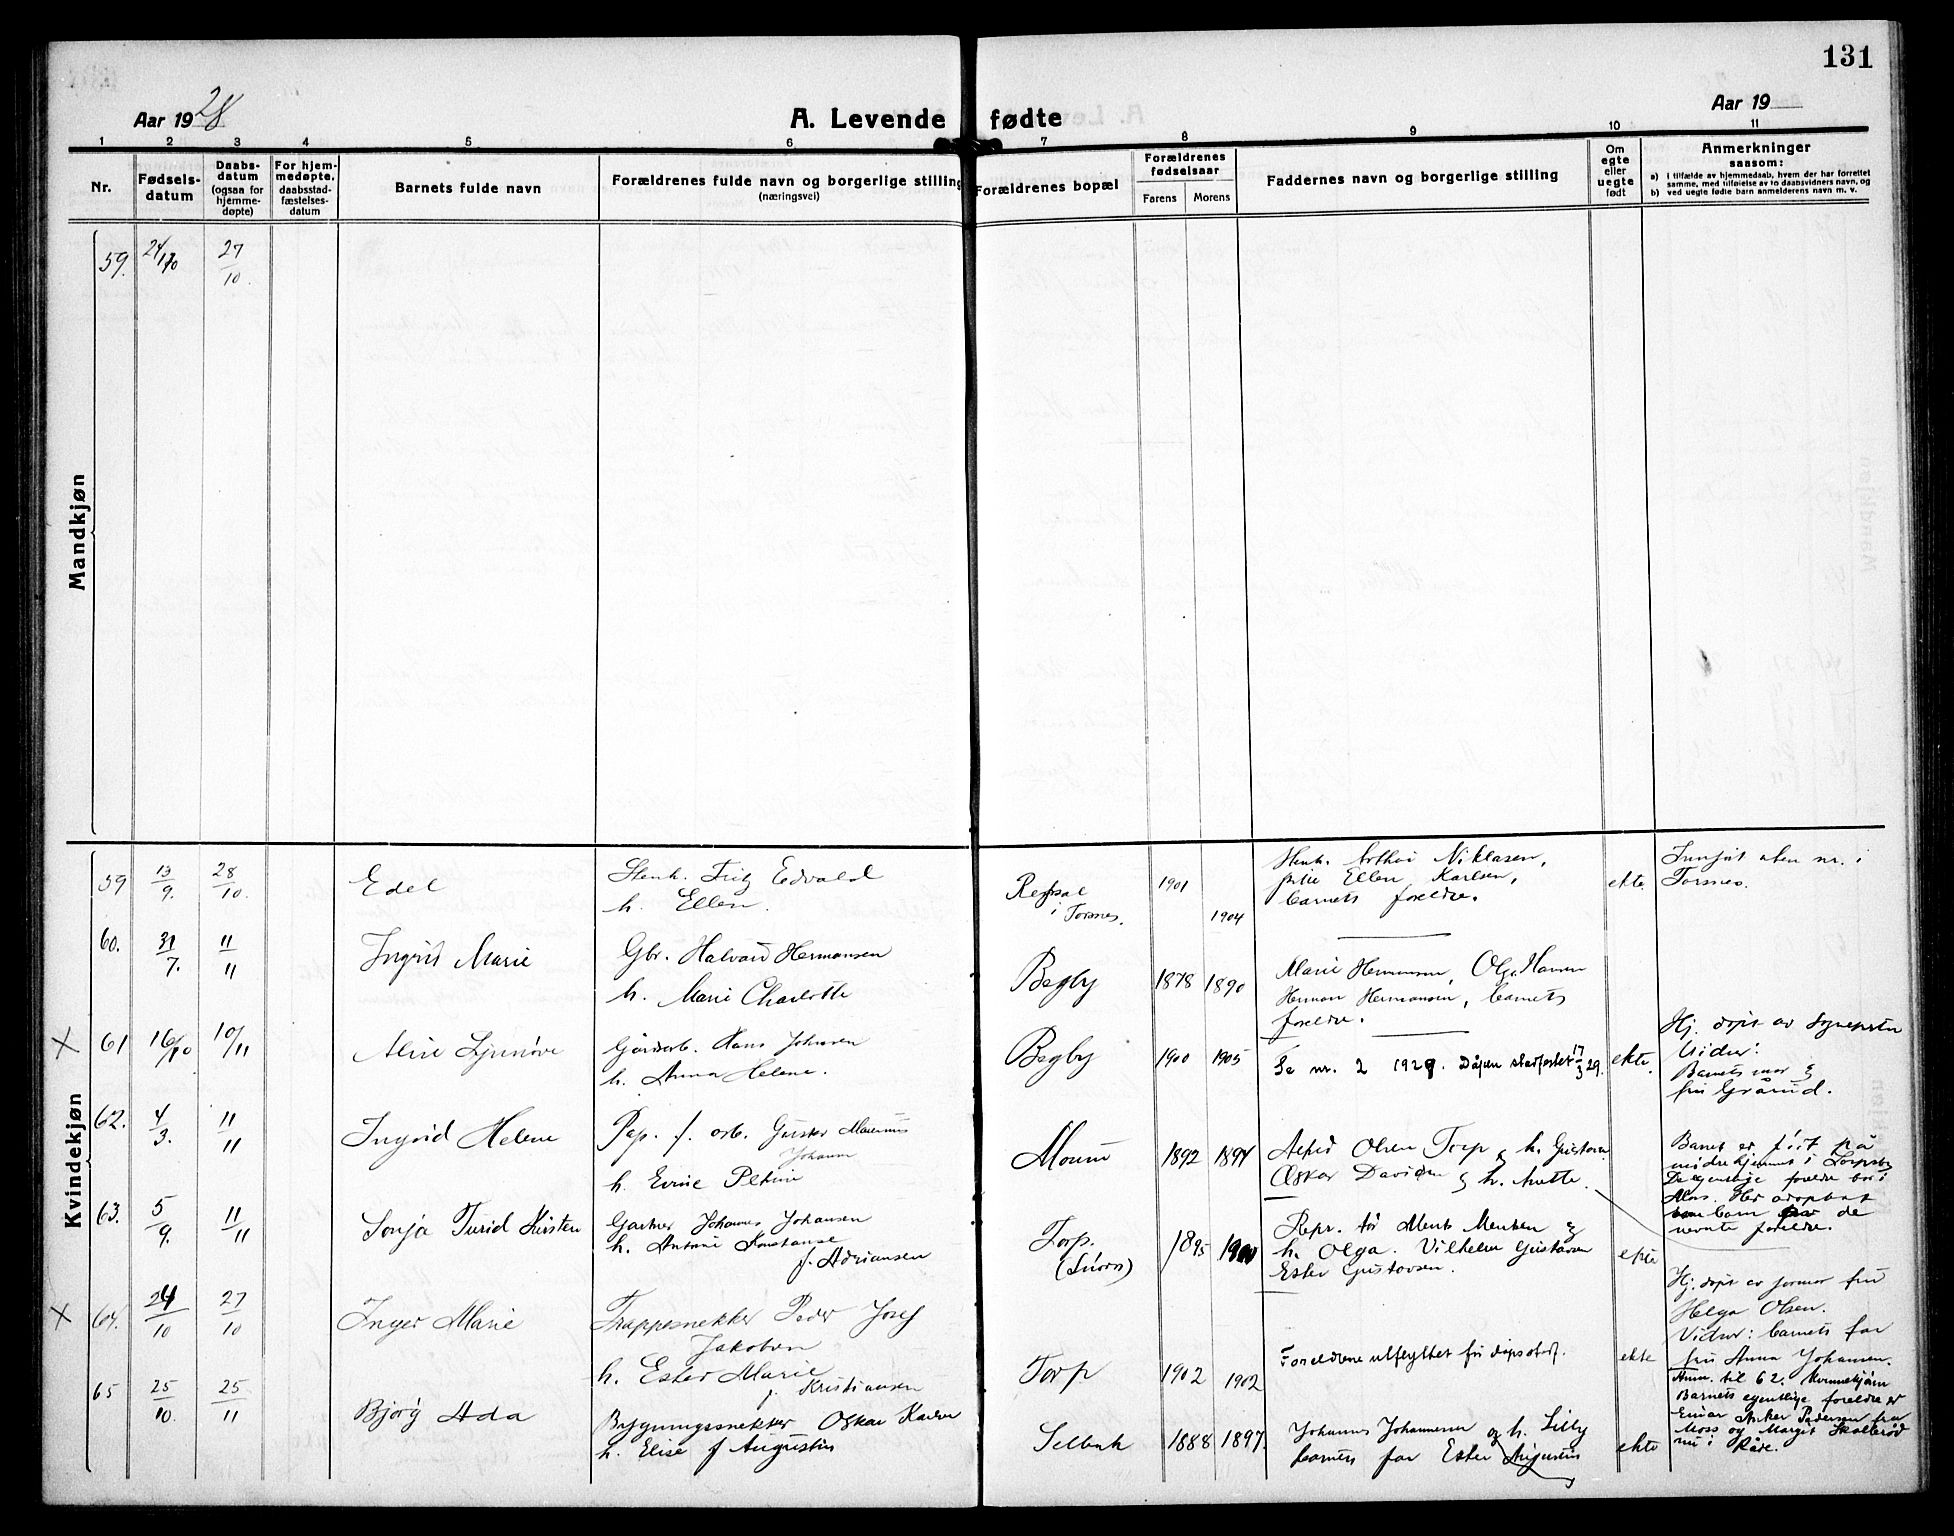 131
Aar 1928
A. Levende fødte
Aar 19
1 2 3 4 5 6 7 8 9 10 11
Nr.
Fødsels-
datum
Daabs-
datum
(ogsaa for
hjemme-
døpte)
For hjem-
medøpte,
daabsstad-
fæstelses-
datum
Barnets fulde navn
Forældrenes fulde navn og borgerlige stilling
(næringsvei)
Forældrenes bopæl
Forældrenes
fødselsaar
Farens Morens
Faddernes navn og borgerlige stilling
Om
egte
eller
uegte
født
Anmerkninger
saasom:
a) i tilfælde av hjemmedaab, hvem der har forrettet
samme, med tilføielse av to daabsvidners navn, og
b) ved uegte fødte barn anmelderens navn m. v.
Mandkjøn
59. 24/10 27/10
Kvindekjøn
59 13/9. 28/10. Edel
Stenh. Fritz Edvald
h. Ellen.
Refsal
i Torsnes.
1901 1904
Stenh. Arthur Niklasen,
Ellen Karlsen,
barnets foreldre.
ekte.
nr. i
Torsnes.
60. 31/7. 11/11 Ingrid Marie
Gbr. Halvard Hermansen
h. Marie Charlotte
Begby
1878 1890
Marie Hermansen, Olga Hansen
Herman Hermansen, barnets
foreldre.
X 61 16/10 10/11
Gårdarb. Hans Johansen
h. Anna Helene.
Begby
1900 1905
Se nr. 2 1929. Dåpen stadfestet 17/3 29.
ekte.
Hj. døpt av sogneprsten
Vidner:
Barnets mor og
fru Grånud.
62. 4/3. 11/11 Ingrid Helene
Pap. f. arb. Gustav
Johann
h. Petrine
Moum
1892 1894
Olsen Torp og h. Gustava.
Oskar Davidsen og h. Anette.
Barnet er født på
mødrehjemmet i Torpsby
De egentlige foreldre bor i
Moss. Her adoptert
barn de
nevnte foreldre.
63. 5/9. 11/11 Sonja Turid Kirsten
Gartner Johannes Johansen
h. Antonie Konstanse
f. Adriansen
Torp.
1895
Repr. for Ments Mentsen og
h. Olga. Vilhelm Gustavsen
Ester Gustavsen.
ekte
X 64. 24/10 27/10 Inger Marie
Trappesnekker Peder Josef
Jakobsen
h. Ester Marie
f. Kristiansen
Torp
1902 1902
Foreldrene utflyttet før dåpsstadf.
ekte
Hj. døpt av jormor fru
Helga Olsen.
Vidner: barnets far
fru Anna Johansen.
65 25/10. 25/11 Bjørg Ada
Bygningssnekker Oskar Karlsen
h. Elise f Augustin
Selbak
1888 1897.
Johannes Johannesen og h. Lilly
barnets far Ester Augustin
ekte
Anm. til 62. Kvinnekjønn
Barnets egentlige foreldre er
Einar Anker Pedersen fra
Moss og Margit Skallerød
nu i Råde.